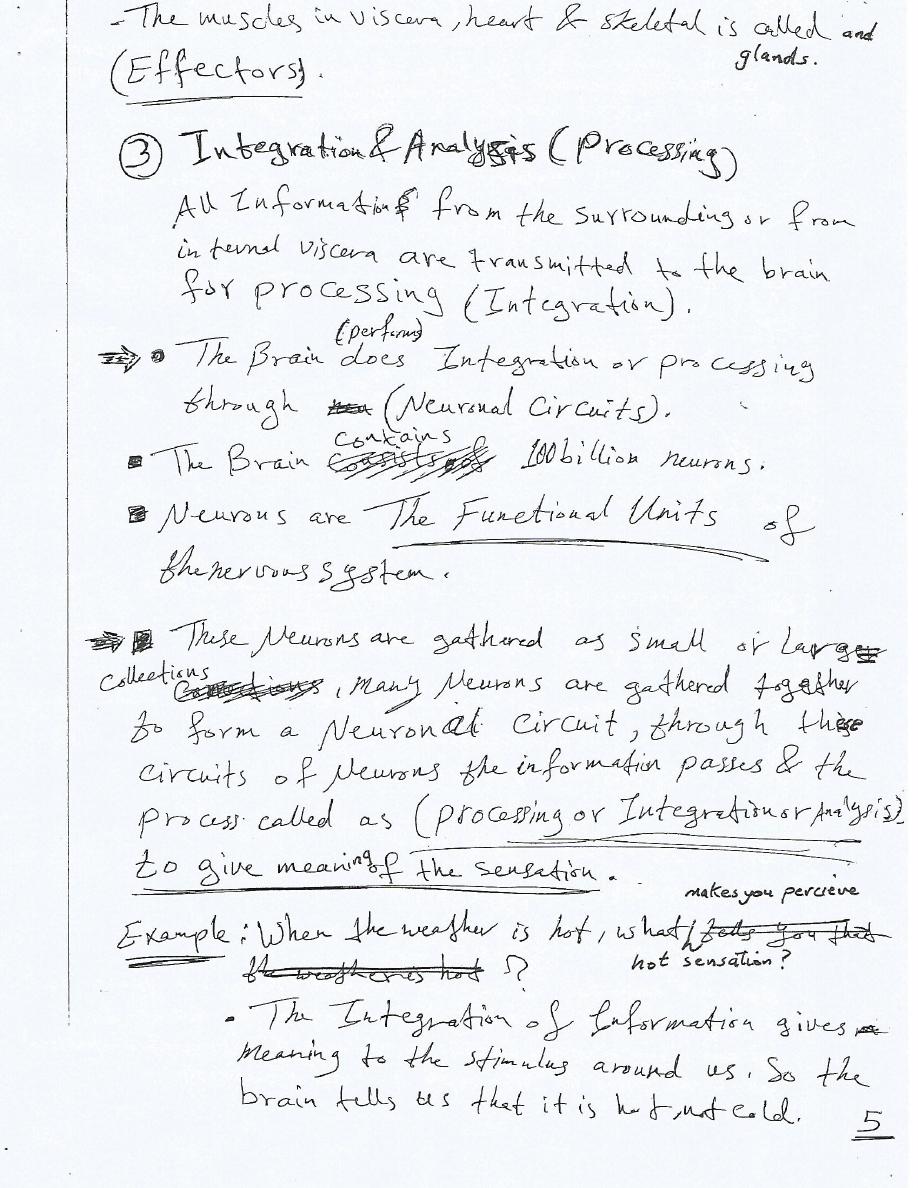 - The muscles in viscera, heart & skeletal is called and
glands.
(Effectors).
③ Integration & Analysis (Processing)
All Informations from the surrounding or from
internal viscera are transmitted to the brain
for processing (Integration).
(performs)
⇒ • The Brain does Integration or processing
through (Neuronal Circuits).
contains
▪ The Brain consists of 100 billion neurons.
▪ Neurons are The Functional Units of
the nervous system.
⇒ ▪ These Neurons are gathered as small or Large
collections
, many Neurons are gathered together
to form a Neuronal circuit, through these
circuits of Neurons the information passes & the
process called as (processing or Integration or Analysis)
to give meaning of the sensation.
makes you percieve
Example: When the weather is hot, what tells you that
hot sensation?
the weather is hot ?
• The Integration of Information gives
meaning to the stimulus around us. So the
brain tells us that it is hot, not cold.
5